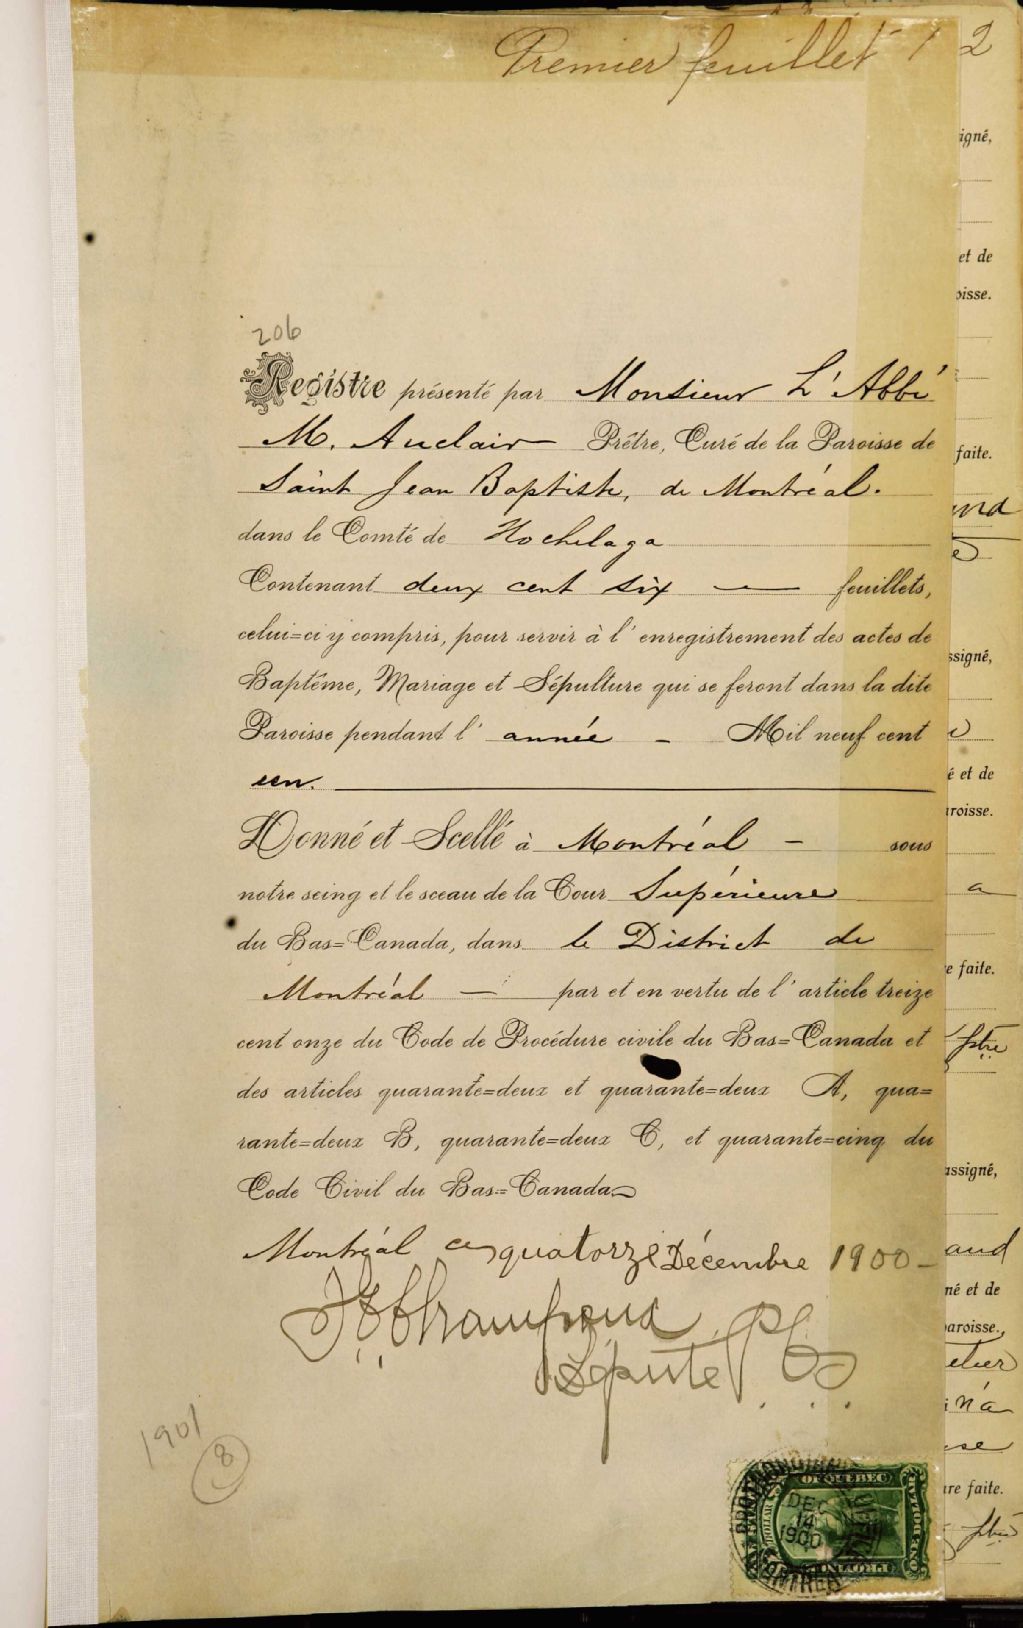 Premier feuillet 1 2
206
Registre présenté par Monsieur L'Abbé
M. Auclair Prêtre, Curé de la Paroisse de
Saint Jean Baptiste, de Montréal.
dans le Comté de Hochelaga
Contenant deux cent six — feuillets,
celui=ci y compris, pour servir à l'enregistrement des actes de
Baptême, Mariage et Sépulture qui se feront dans la dite
Paroisse pendant l'année — Mil neuf cent
un.
Donné et Scellé à Montréal — sous
notre seing et le sceau de la Cour Supérieure
du Bas=Canada, dans le District de
Montréal — par et en vertu de l'article treize
cent onze du Code de Procédure civile du Bas=Canada et
des articles quarante=deux et quarante=deux A, qua=
rante=deux B, quarante=deux C, et quarante=cinq du
Code Civil du Bas=Canada
Montréal ce quatorze Décembre 1900 —
Député P. C. S.
1901
8
QUEBEC
DEC
14
1900
igné,
et de
oisse.
faite.
ssigné,
é et de
aroisse.
a
e faite.
ptre
assigné,
aud
né et de
paroisse.,
n'a
re faite.